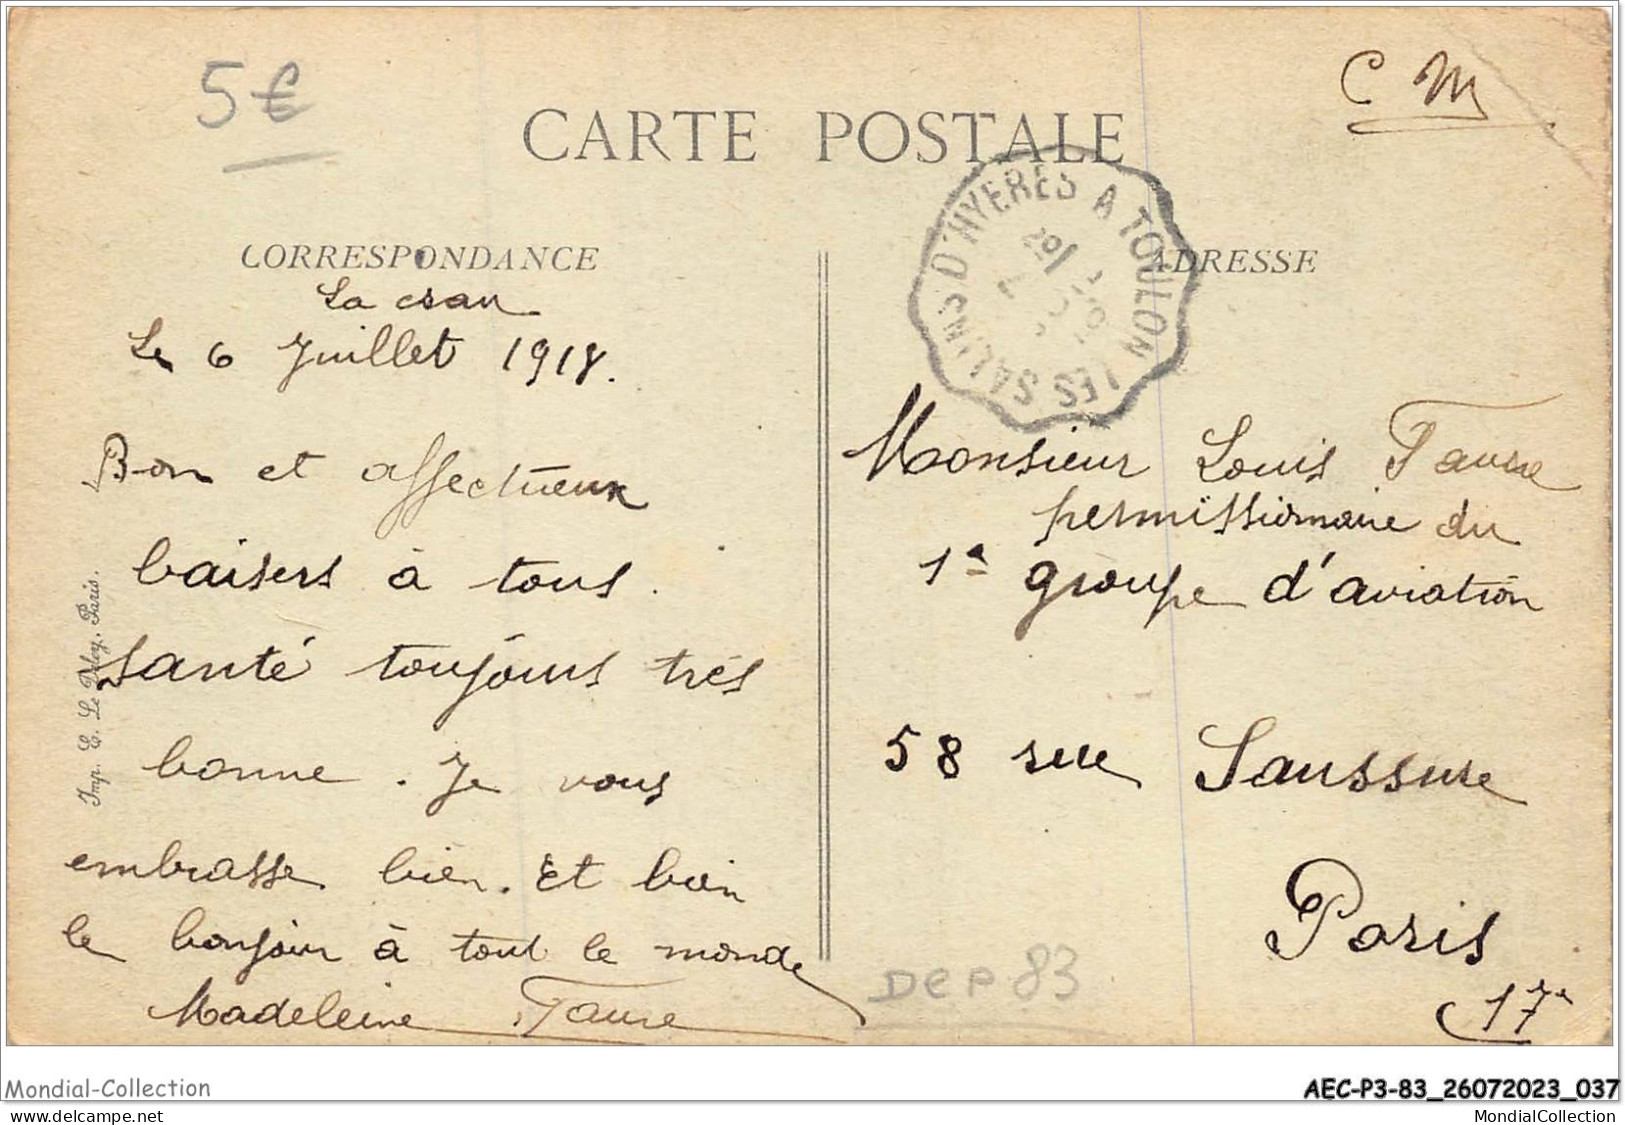 5€
C M
CARTE POSTALE
LES SALINS D'HYERES A TOULON
CORRESPONDANCE
ADRESSE
La crau
Le 6 Juillet 1918.
Bon et affectueux
baisers à tous.
santé toujours très
bonne. Je vous
embrasse bien. Et bien
le bonjour à tout le monde
Madeleine Faure
Imp. E. Le Deley, Paris.
Monsieur Louis Faure
permissionnaire du
1er groupe d'aviation
58 rue Saussure
Paris
17e
Dep 83
Mondial-Collection
AEC-P3-83_26072023_037
delcampe.net
MondialCollection